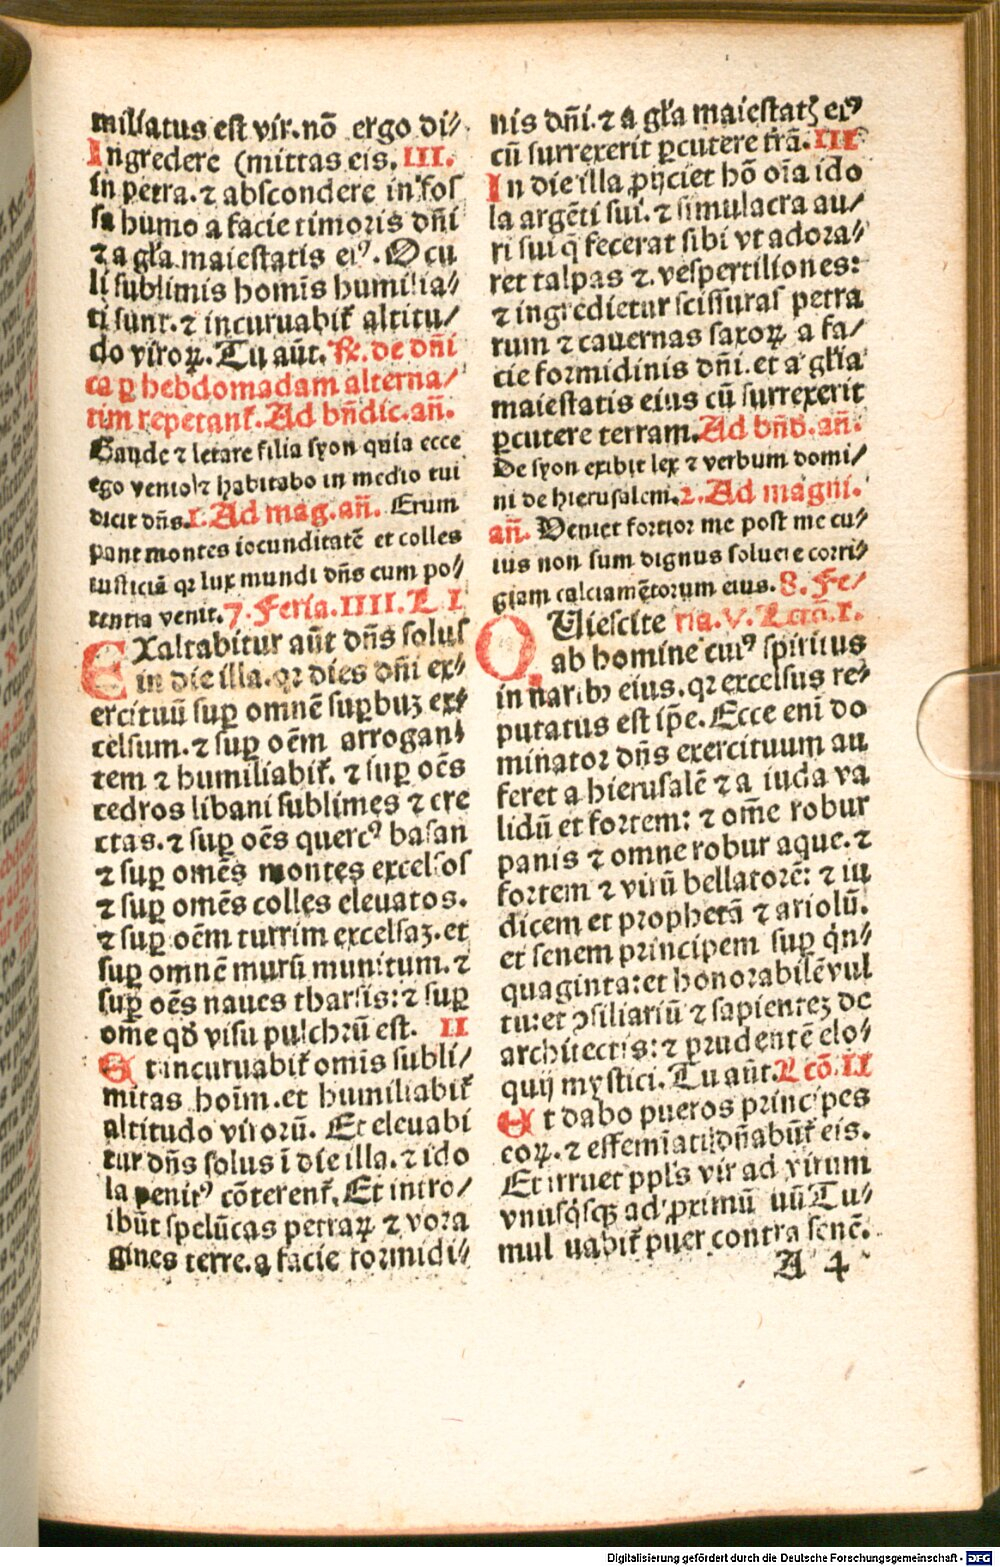 miliatus est vir.nõ ergo di⸗
Ingredere (mittas eis. III.
in petra.⁊ abscondere in fos
sa humo a facie timoris dñi
⁊ a gl̃a maiestatis eiꝰ. Ocu
li sublimis homĩs humilia⸗
ti sunt.⁊ incuruabit̃ altitu/
do viroꝝ. Tu aũt. ℞. de dñi
ca ꝑ hebdomadam alterna/
tim repetant̃. Ad bñdic.añ.
Gaude ⁊ letare filia syon quia ecce
ego venio ⁊ habitabo in medio tui
dicit dñs. 1. Ad mag.añ. Erum
pant montes iocunditatẽ et colles
iusticiã qr lux mundi dñs cum po⸗
tentia venit. 7. Feria.IIII. L I
EXaltabitur aũt dñs solus
in die illa. qr dies dñi ex⸗
ercituũ suꝑ omnẽ suꝑbuʒ ex⸗
celsum.⁊ suꝑ oẽm arrogan⸗
tem ⁊ humiliabit̃. ⁊ suꝑ oẽs
cedros libani sublimes ⁊ ere
ctas.⁊ suꝑ oẽs quercꝰ basan
⁊ suꝑ omẽs montes excelsos
⁊ suꝑ omẽs colles eleuatos.
⁊ suꝑ oẽm turrim excelsaʒ.et
suꝑ omnẽ murũ munitum.⁊
suꝑ oẽs naues tharsis:⁊ suꝑ
om̃e qð visu pulchrũ est. II
Et incuruabit̃ omĩs subli/
mitas hoĩm.et humiliabit̃
altitudo virorũ. Et eleuabi
tur dñs solus ĩ die illa.⁊ ido
la penitꝰ cõterent̃. Et intro/
ibũt spelũcas petraꝝ ⁊ vora
gines terre.a facie formidi⸗
nis dñi.⁊ a gl̃a maiestatꝭ eiꝰ
cũ surrexerit ꝑcutere trã. III
In die illa ꝓijciet hõ oĩa ido
la argẽti sui.⁊ simulacra au/
ri sui q̃ fecerat sibi vt adora⸗
ret talpas ⁊ vespertiliones:
⁊ ingredietur scissuras petra
rum ⁊ cauernas saxoꝝ a fa/
cie formidinis dñi.et a gl̃ia
maiestatis eius cũ surrexerit
ꝑcutere terram. Ad bñd.añ.
De syon exibit lex ⁊ verbum domi/
ni de hierusalem. 2. Ad magni.
añ. Veniet fortior me post me cu⸗
ius non sum dignus soluere corri⸗
giam calciamẽtorum eius. 8. Fe/
QUiescite ria.V. Lectõ.I.
ab homine cuiꝰ spiritus
in naribꝰ eius.qr excelsus re⸗
putatus est ip̃e. Ecce enĩ do
minator dñs exercituum au
feret a hierusalẽ ⁊ a iuda va
lidũ et fortem: ⁊ om̃e robur
panis ⁊ omne robur aque.⁊
fortem ⁊ virũ bellatorẽ: ⁊ iu
dicem et prophetã ⁊ ariolũ.
et senem principem suꝑ q̃n⸗
quaginta:et honorabilẽ vul
tu:et ꝯsiliariũ ⁊ sapienteʒ de
architectis:⁊ prudentẽ elo⸗
quij mystici. Tu aũt. L̃ cõ.II
Et dabo pueros principes
eoꝝ.⁊ effemĩati dñabũt̃ eis.
Et irruet ppl̃s vir ad virum
vnusq̃sqꝫ ad ꝓximũ suũ Tu⸗
mul uabit̃ puer contra senẽ.
A 4
Digitalisierung gefördert durch die Deutsche Forschungsgemeinschaft - DFG